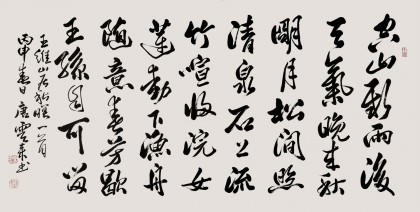 空山新雨後
天氣晚來秋
明月松間照
清泉石上流
竹喧歸浣女
蓮動下漁舟
隨意春芳歇
王孫自可留
王維山居秋暝一首
丙申春日唐雲來書